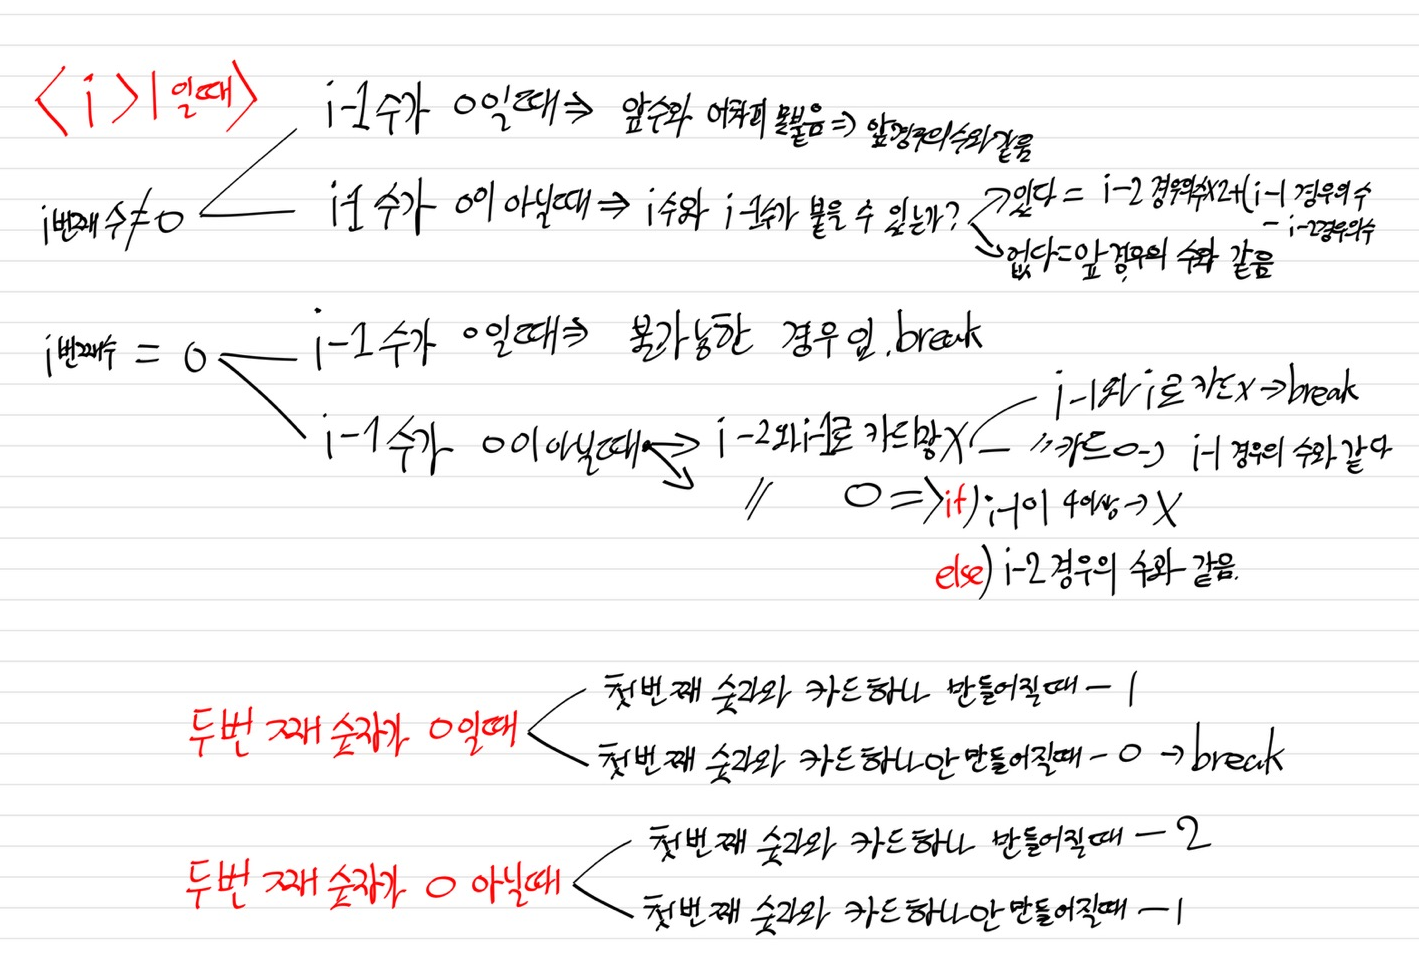 <i>1일때>
i-1수가 0일때⇒ 앞수와 어차피 못붙음⇒ 앞경우의수와같음
i번째수≠0
i-1 수가 0이 아닐때⇒ i수와 i-1수가 붙을 수 있는가?
있다= i-2 경우의수x2+(i-1 경우의수
- i-2경우의수
없다=앞경우의 수와 같음
i번째수 = 0
i-1수가 0일때⇒ 불가능한 경우임.break
i-1수가 0이아닐때
i-2와i-1로 카드 X
i-1와 i로 카드X→break
〃카드O→ i-1 경우의 수와같다
〃 O ⇒ if) i-1이 4이상→X
else) i-2경우의 수와 같음.
두번 째 숫자가 0일때
첫번째 숫자와 카드하나 만들어질때 - 1
첫번째 숫자와 카드하나안만들어질때 - 0 →break
두번 째 숫자가 0 아닐때
첫번째 숫자와 카드하나 만들어질때 - 2
첫번째 숫자와 카드하나안만들어질때 - 1